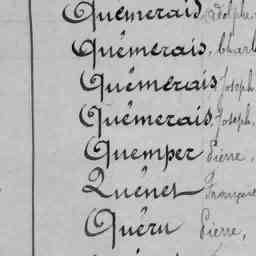 Quémerais, Adolphe
Quémerais, Charl
Quémerais, Joseph
Quémerais, Joseph,
Quemper Pierre,
Quénet François
Quéru Pierre,